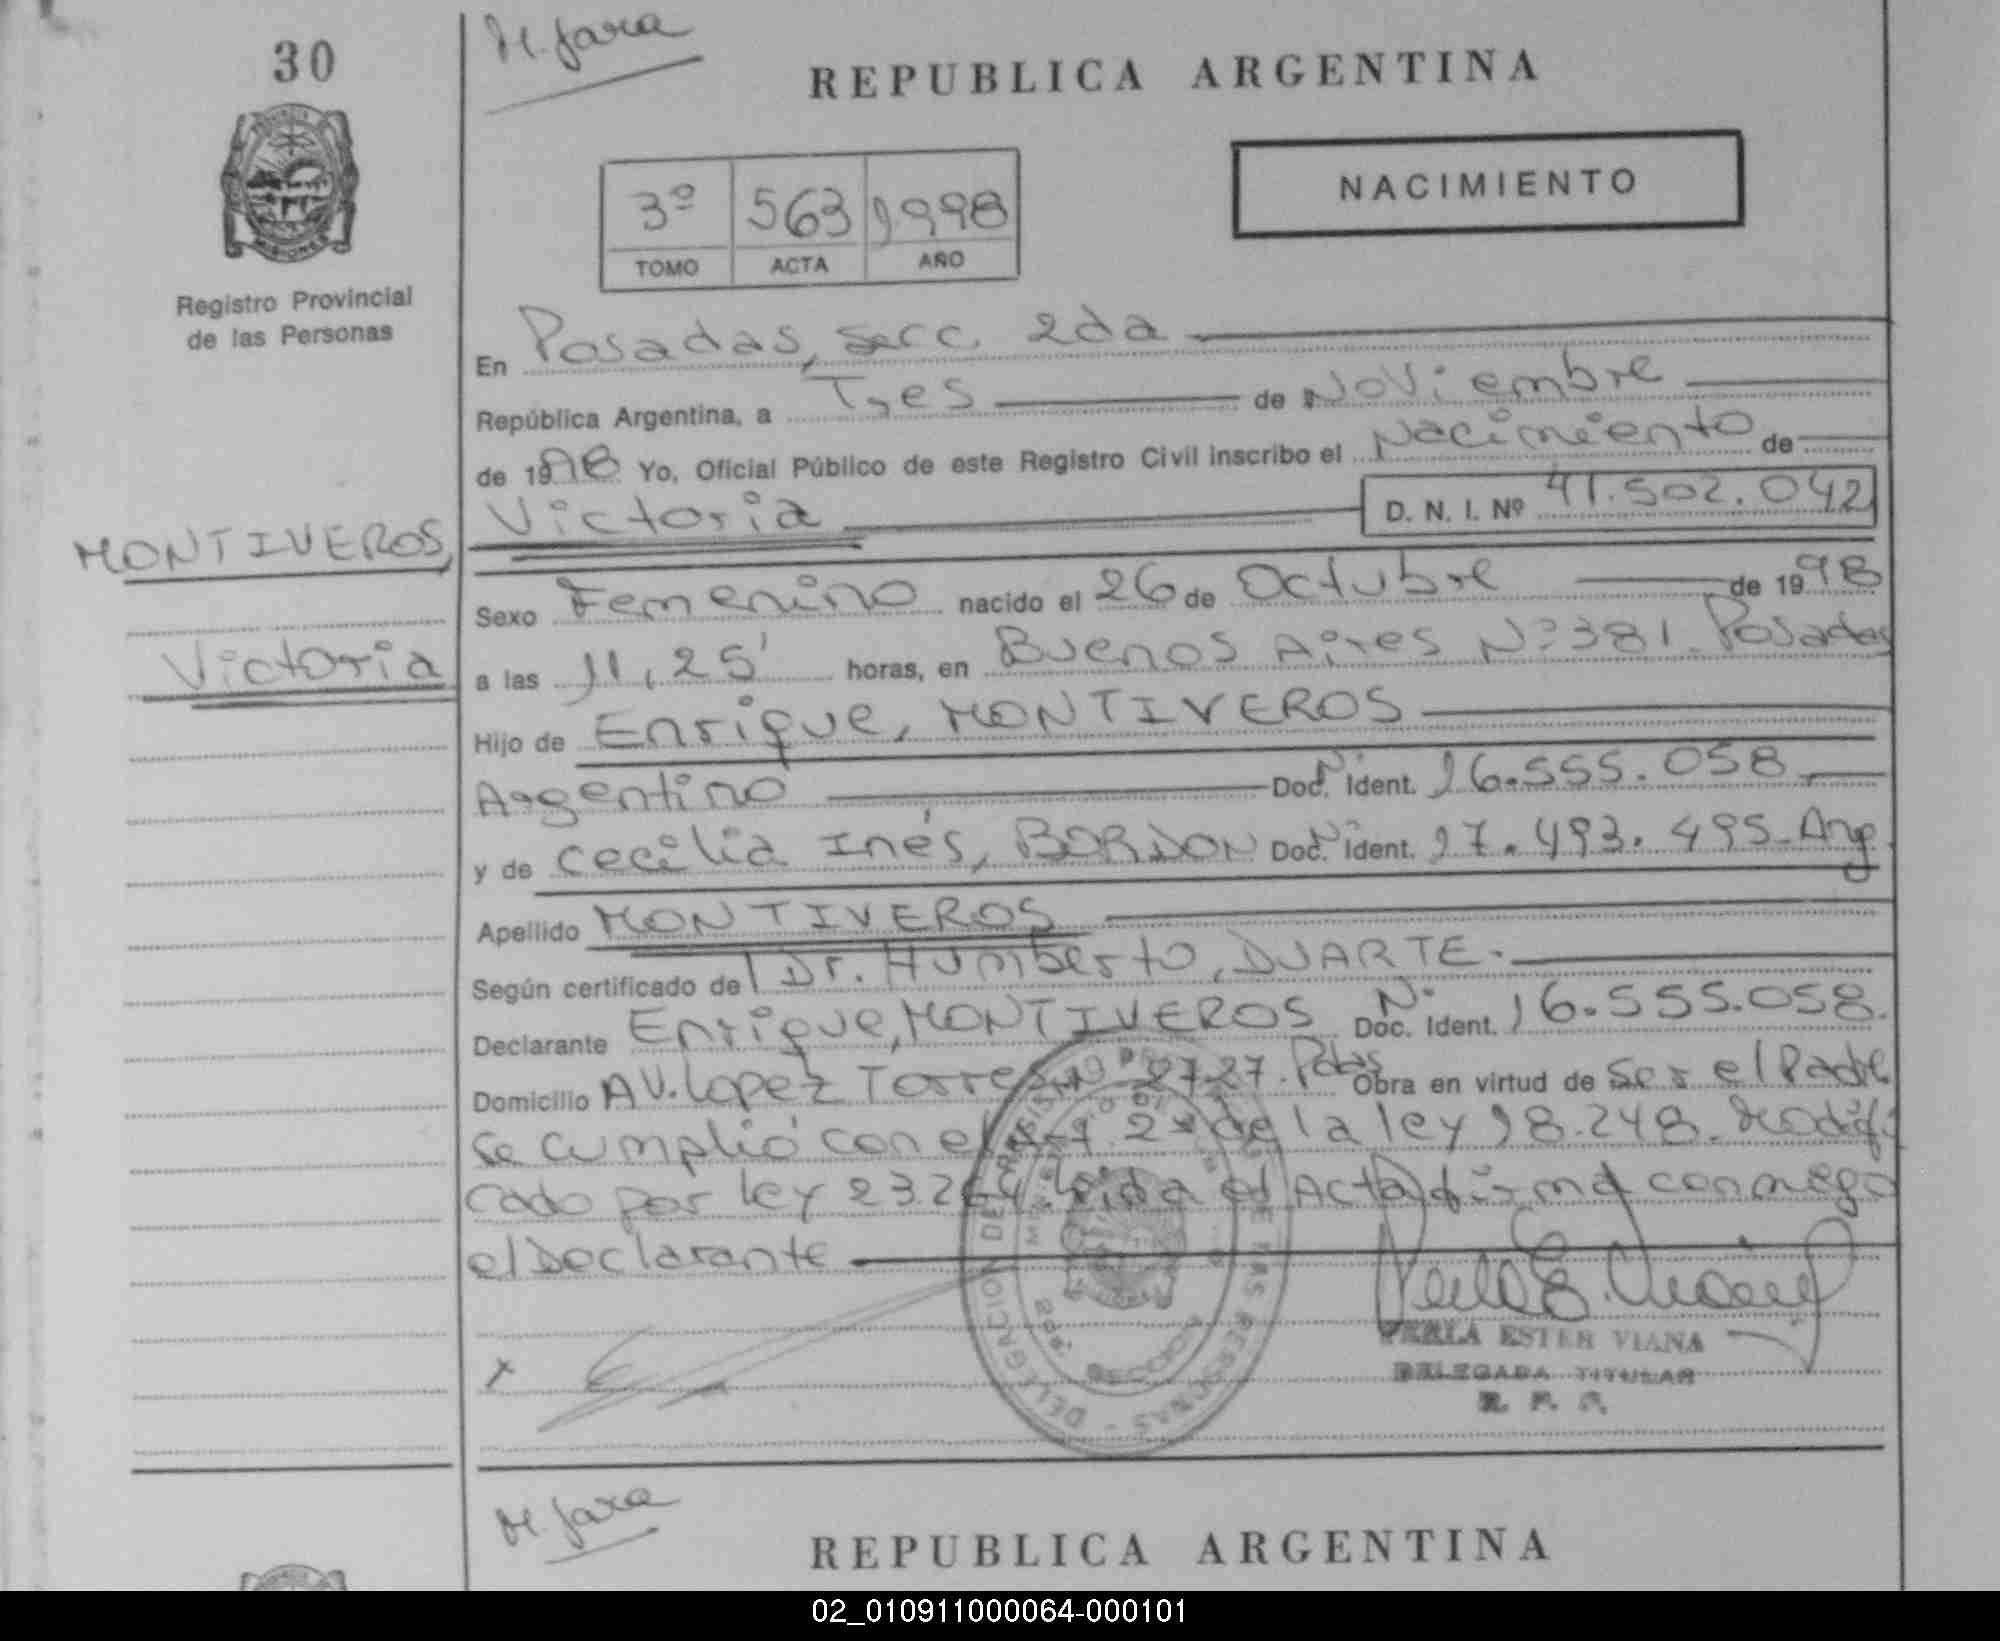 30
H. Jara
REPUBLICA ARGENTINA
NACIMIENTO
3º 563 1998
TOMO ACTA AÑO
MISIONES
Registro Provincial
de las Personas
En Posadas, secc. 2da
República Argentina, a Tres de Noviembre
de 1998 Yo, Oficial Público de este Registro Civil inscribo el Nacimiento de
Victoria D. N. I. Nº 41.502.042
MONTIVEROS,
Victoria
Sexo Femenino nacido el 26 de Octubre de 1998
a las 11,25' horas, en Buenos Aires Nº 381. Posadas
Hijo de Enrique, MONTIVEROS
Argentino Doc. Nº Ident. 16.555.058
y de Cecilia Inés, BORDON Doc. Nº Ident. 17.493.495-Arg
Apellido MONTIVEROS
Según certificado de Dr. Humberto, DUARTE.
Declarante Enrique, MONTIVEROS Nº Doc. Ident. 16.555.058.
Domicilio AV. Lopez Torres Nº 2727. Pdas Obra en virtud de ser el Padre
se cumplió con el Art 2º de la ley 18.248. Modifi
cado por ley 23.264 Leida el Acta firma conmigo
el Declarante
DELEGACION DE LAS PERSONAS
x
PERLA ESTER VIANA
DELEGADA TITULAR
R. P. P.
H. Jara
REPUBLICA ARGENTINA
02_010911000064-000101